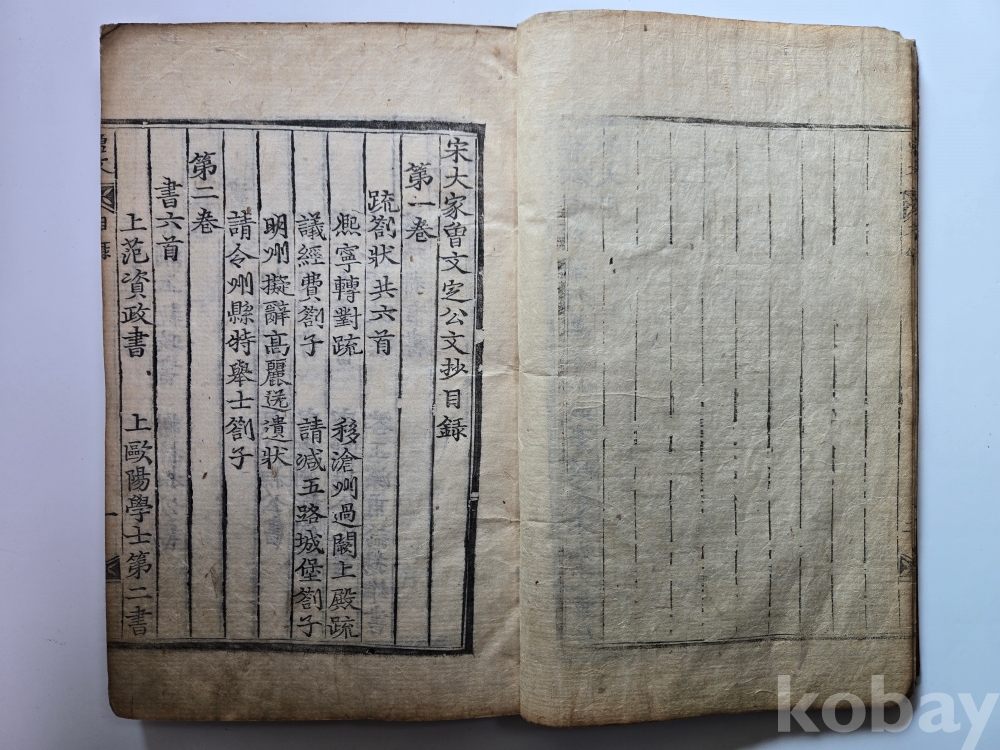 宋大家曾文定公文抄目錄
第一卷
疏劄狀共六首
熈寧轉對疏 移滄州過闕上殿疏
議經費劄子 請减五路城堡劄子
明州擬辭高麗送遺狀
請令州縣特舉士劄子
第二卷
書六首
上范資政書 上歐陽學士第二書
目錄 一
kobay